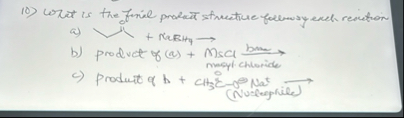 10) What is the final product structure following each reaction
a) O + NaBH4 →
b) product of (a) + MsCl base →
mesyl chloride
O
c) product of b + CH3C-O⊖ Na+ →
(Nucleophile)